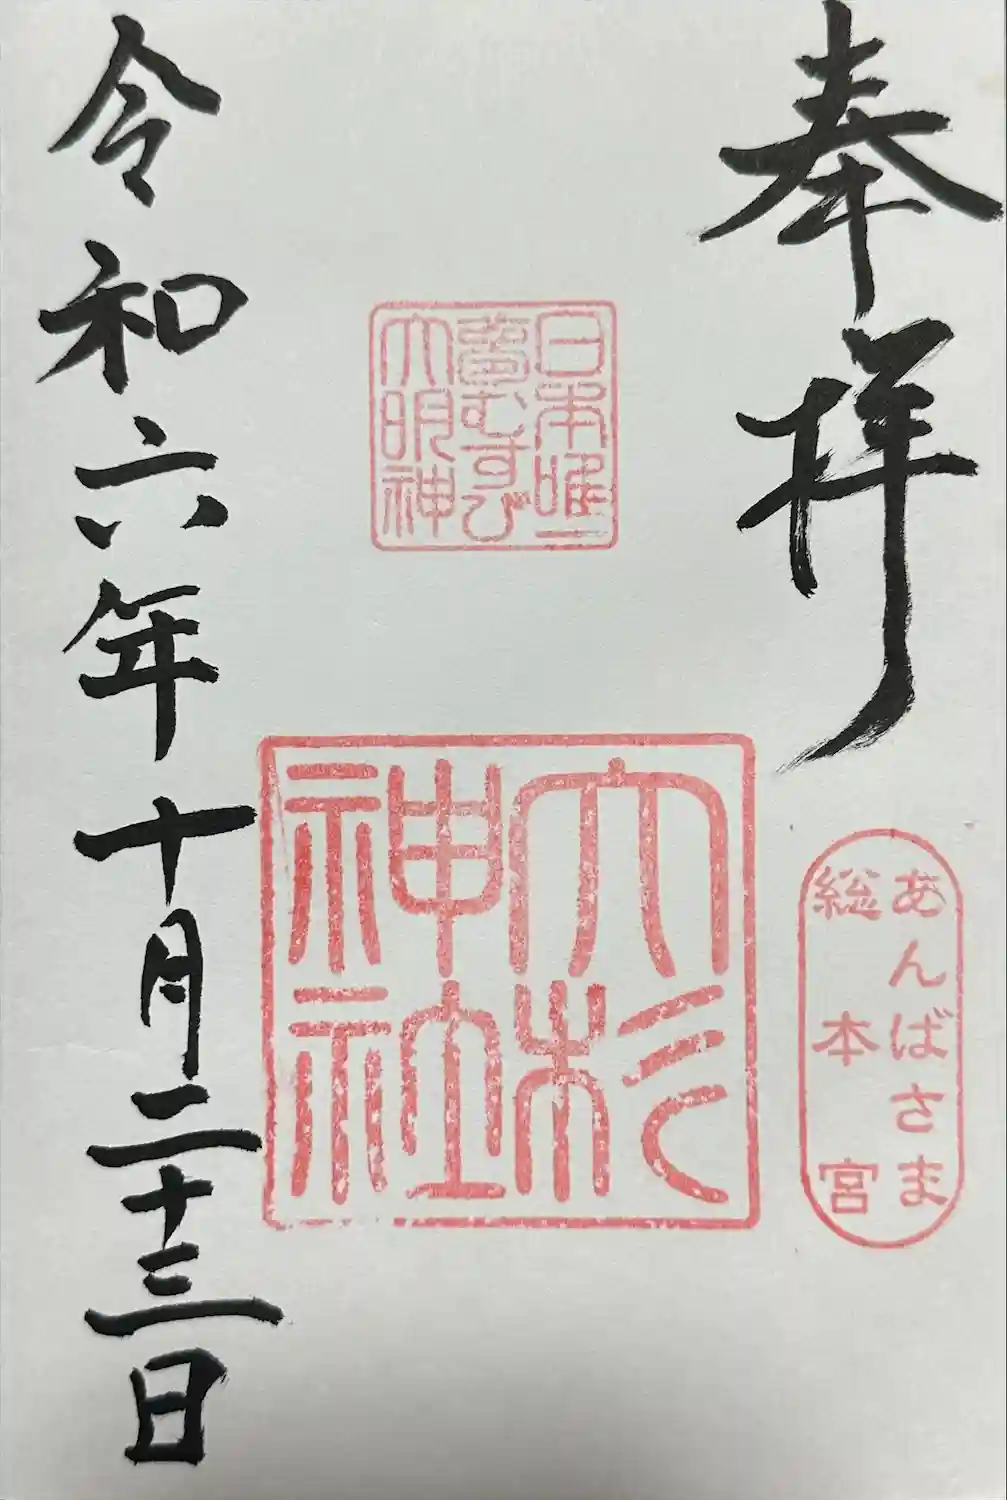 奉拝
あんばさま
総本宮
日本唯一
夢むすび
大明神
大杉
神社
令和六年十月二十三日